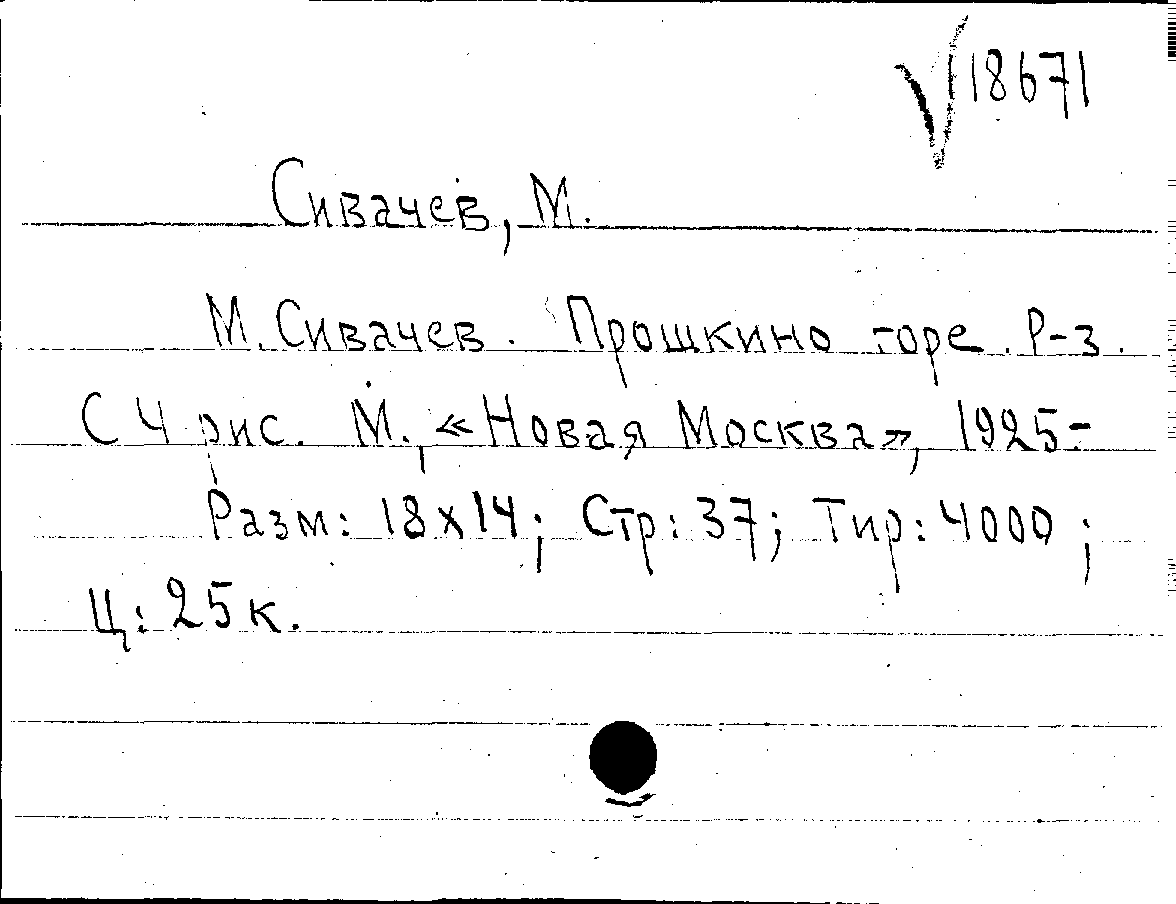 √18671
Сивачев, М.
М. Сивачев. Прошкино горе. Р-з.
С 4 рис. М., «Новая Москва», 1925-
Разм: 18х14; Стр: 37; Тир: 4000;
Ц: 25 к.